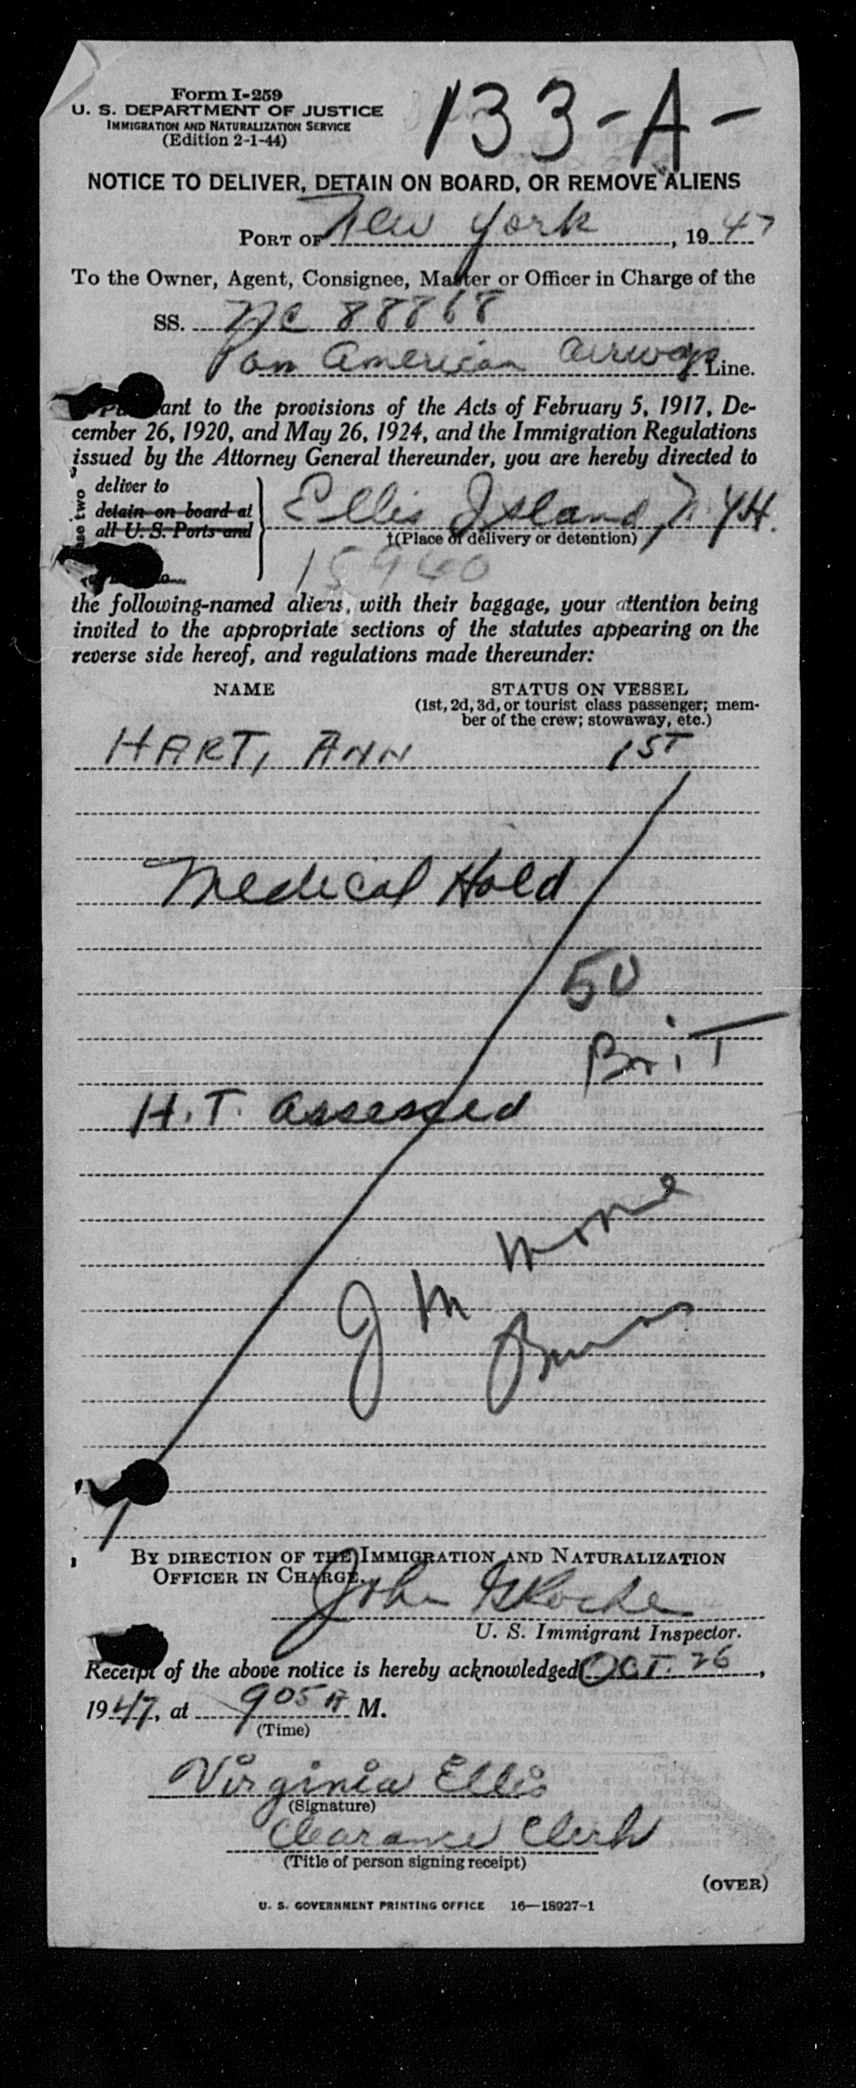 Form I-259
U. S. DEPARTMENT OF JUSTICE
IMMIGRATION AND NATURALIZATION SERVICE
(Edition 2-1-44)
133-A-
NOTICE TO DELIVER, DETAIN ON BOARD, OR REMOVE ALIENS
PORT OF New York, 1947
To the Owner, Agent, Consignee, Master or Officer in Charge of the
SS. NC 88868
Pan American Airways Line.
ant to the provisions of the Acts of February 5, 1917, De-
cember 26, 1920, and May 26, 1924, and the Immigration Regulations
issued by the Attorney General thereunder, you are hereby directed to
deliver to
detain on board at
all U. S. Ports and
Ellis Island, N.Y.H.
†(Place of delivery or detention)
15960
the following-named aliens, with their baggage, your attention being
invited to the appropriate sections of the statutes appearing on the
reverse side hereof, and regulations made thereunder:
NAME STATUS ON VESSEL
(1st, 2d, 3d, or tourist class passenger; mem-
ber of the crew; stowaway, etc.)
HART, ANN 1ST
Medical Hold
50
Brit
H.T. assessed
J M
BY DIRECTION OF THE IMMIGRATION AND NATURALIZATION
OFFICER IN CHARGE.
John
U. S. Immigrant Inspector.
Receipt of the above notice is hereby acknowledged OCT. 26,
1947, at 905 A M.
(Time)
Virginia Ellis
(Signature)
Clearance Clerk
(Title of person signing receipt)
(OVER)
U. S. GOVERNMENT PRINTING OFFICE 16—18927-1